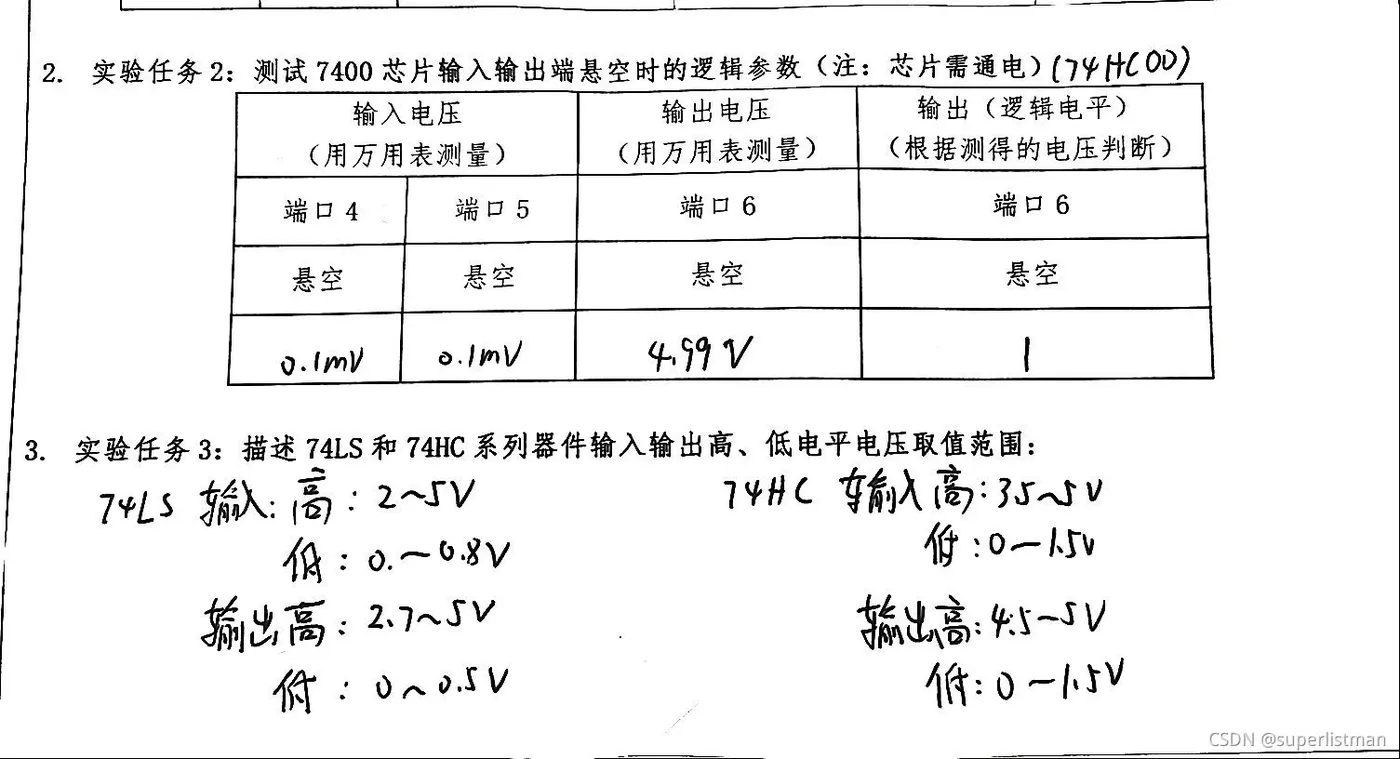 2. 实验任务2：测试7400芯片输入输出端悬空时的逻辑参数（注：芯片需通电）(74HC00)
输入电压 输出电压 输出（逻辑电平）
（用万用表测量） （用万用表测量） （根据测得的电压判断）
端口4 端口5 端口6 端口6
悬空 悬空 悬空 悬空
0.1mV 0.1mV 4.99V 1
3. 实验任务3：描述74LS和74HC系列器件输入输出高、低电平电压取值范围：
74LS 输入：高：2~5V 74HC 输入高：35~5V
低：0.~0.8V 低：0~1.5V
输出高：2.7~5V 输出高：4.5~5V
低：0~0.5V 低：0~1.5V
CSDN @superlistman